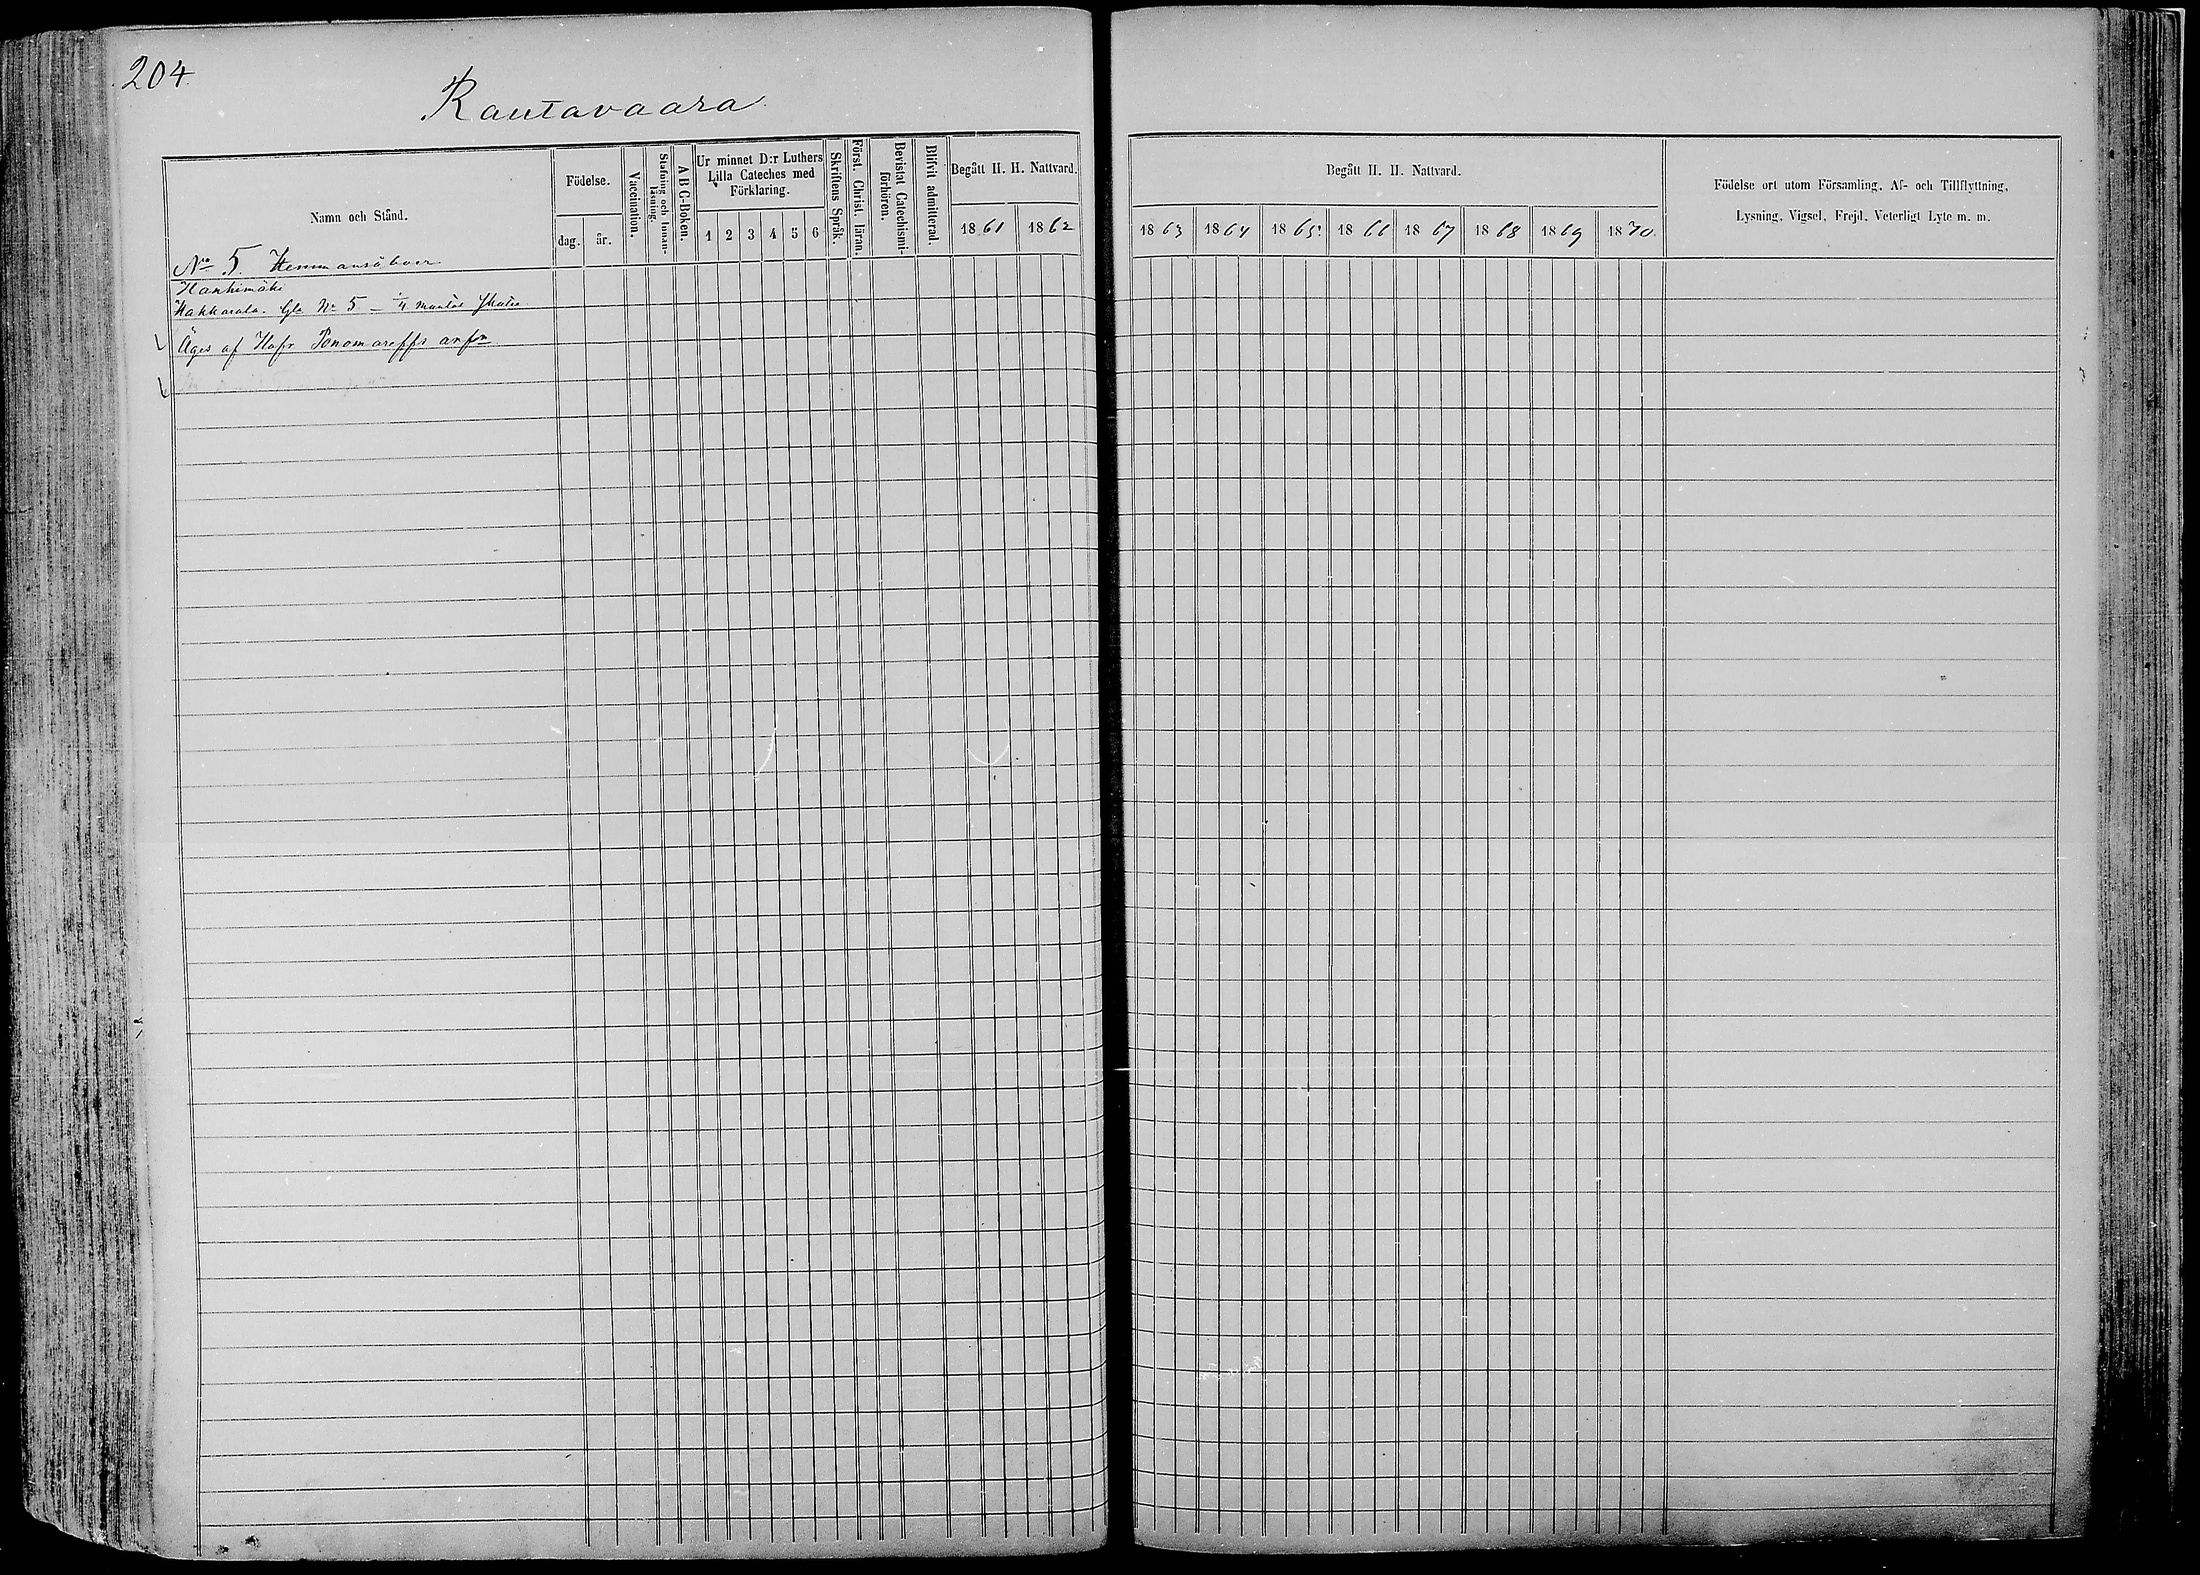 204.
Rautavaara
Namn och Stånd.
Födelse.
dag.
år.
Vaccination.
Stafning och Innan-
läsning.
A B C-Boken.
Ur minnet D:r Luthers
Lilla Cateches med
Förklaring.
1 2 3 4 5 6
Skriftens Språk.
Först. Christ. läran.
Bevistat Catechismi-
förhören.
Blifvit admitterad.
Begått H. H. Nattvard.
1861 1862
No 5. Hemmansåboer
Hankimäki
Kakkarala. Gla No 5 – 1/4 mantal Skatte
Äges af Hofr Ponomareffs arfn
Begått H. H. Nattvard.
1863 1864 1865. 1866 1867 1868 1869 1870.
Födelse ort utom Församling, Af- och Tillflyttning,
Lysning, Vigsel, Frejd, Veterligt Lyte m. m.